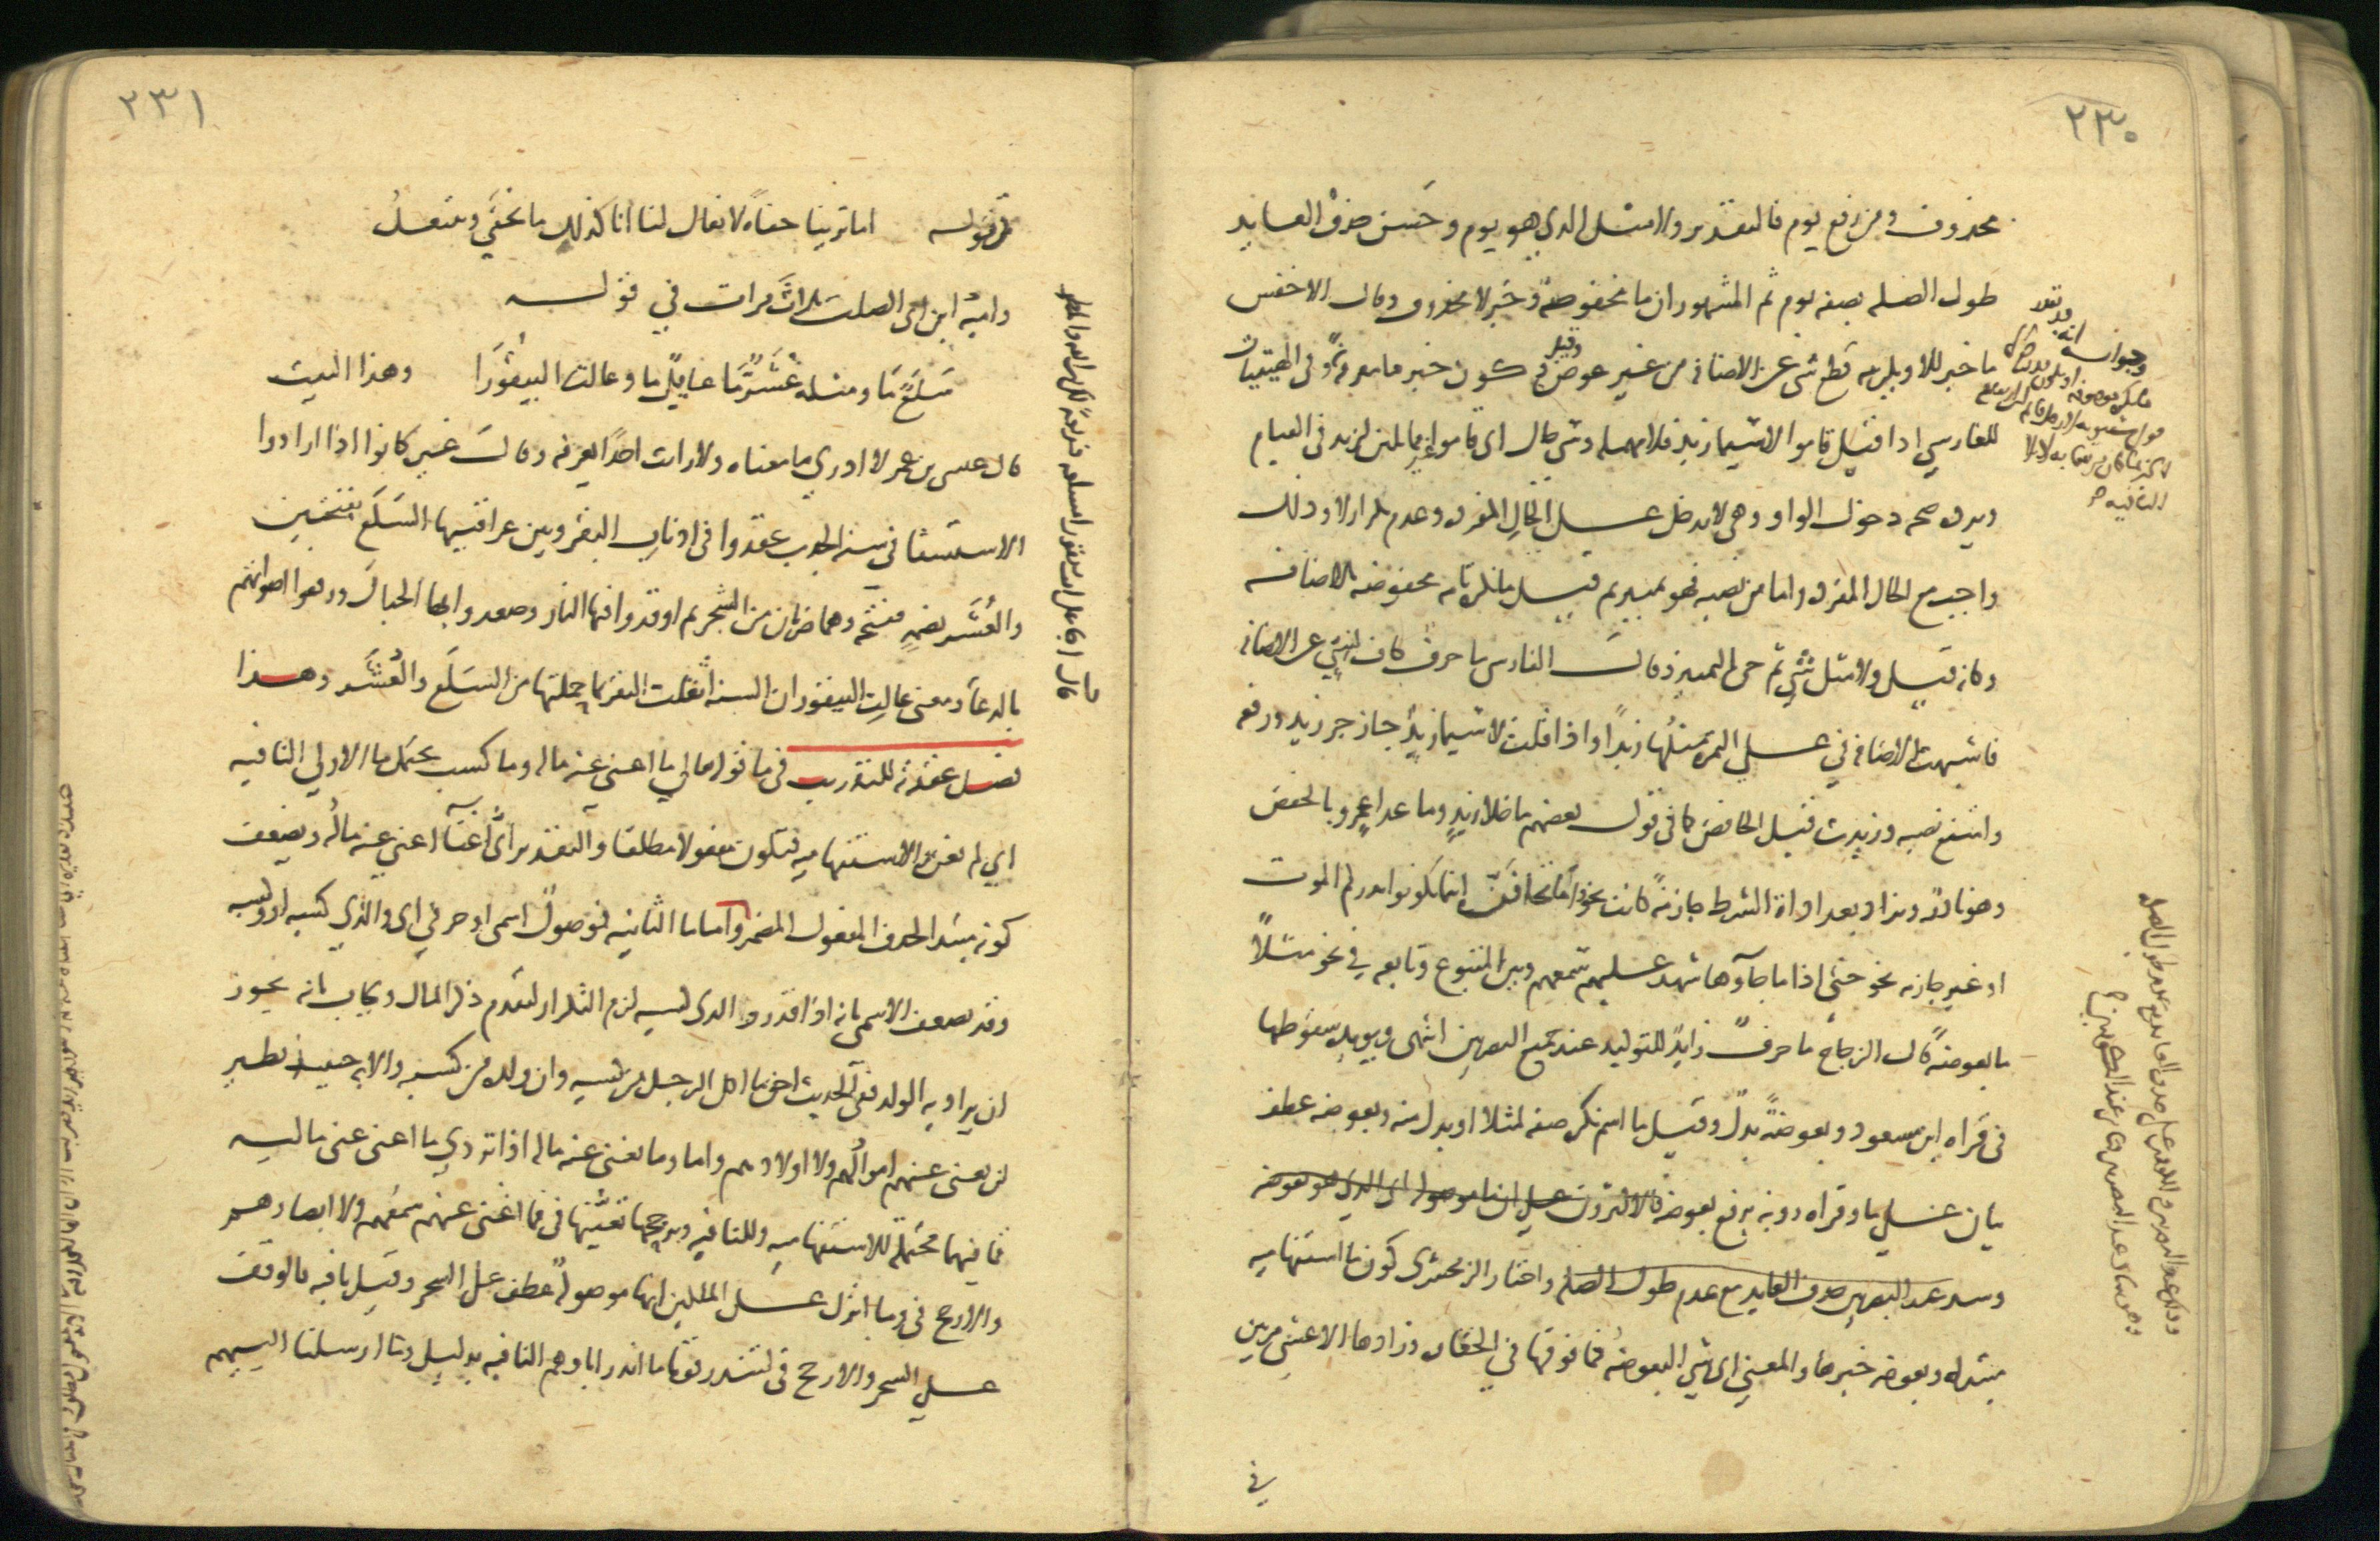 ٢٣٠
محذوف ومن رفع يوم فالتقدير ولا مثل الذي هو يوم وحسن حذف العايد
طول الصلة بصفة يوم ثم المشهور ان ما مخفوضة وخبر لا محذوف وقال الاخفش
ما خبر للا ويلزمه قطع سي عن الاضافة من غير عوض وقيل كون خبر لا معرفة وفي الهيتيات
للفارسي اذا قيل قاموا لاسيما زيد فلا مهملة وسي حال اي قاموا غير مماثلين لزيد في القيام
ويرده صحة دخول الواو وهي لا تدخل على الحال المفردة وعدم تكرار لا وذلك
واجب مع الحال المفردة واما من نصبه فهو تمييز ثم قيل ما نكرة تامة مخفوضة بالاضافة
وكانه قيل ولا مثل شي ثم جي بالتمييز وقال الفارسي ما حرف كاف لسي عن الاضافة
فاشبهت الاضافة في على التمرة مثلها زبدا واذا قلت لاسيما زيد جاز جر زيد ورفعه
وامتنع نصبه وزيدت قبل الخافض كما في قول بعضهم ما خلا زيد وما عدا عمرو بالخفض
وهو نادر وتزاد بعد اداة الشرط جازمة كانت نحو واما تخافن اينما تكونوا يدرككم الموت
او غير جازمة نحو حتى اذا ما جآوها شهد عليهم سمعهم وبين المتبوع وتابعه في نحو مثلاً
ما بعوضة قال الزجاج ما حرف زايد للتوكيد عند جميع البصريين انتهى ويويده سقوطها
في قراة ابن مسعود وبعوضة بدل وقيل ما اسم نكرة صفة لمثلا او بدل منه وبعوضة عطف
بيان على ما وقراه روبة برفع بعوضة فالاكثرون على ان ما موصولة اي الذي هو بعوضة
عند البصريين حذف العايد مع عدم طول الصلة واختار الزمخشري كون ما استفهامية
مبتدا وبعوضة خبرها والمعنى اي شي البعوضة فما فوقها في الحقارة وزادها الاعشى مرتين
في
٢٣١
في قوله اما ترينا حفاة لا نعال لنا انا كذلك ما نحفى وننتعل
وامية ابن ابي الصلت ثلاث مرات في قوله
سلع ما ومثله عشر ما عايل ما وعالت البيقورا وهذا البيت
قال عيسى بن عمر لا ادري ما معناه ولا رايت احدا يعرفه وقال غيره كانوا اذا ارادوا
الاستسقا في سنة الجدب عقدوا في اذناب البقر وبين عراقيبها السلع بفتحتين
والعشر بضمه ففتحه وهما ضربان من الشجر ثم اوقدوا فيها النار وصعدوا بها الجبال ورفعوا اصواتهم
بالدعا ومعنى عالت البيقور ان السنة اثقلت البقر بما حملتها من السلع والعشر وهذا
فصل عقدته للتدريب في ما قوله تعالى ما اغنى عنه ماله وما كسب يحتمل ما الاولى النافية
اي لم يغن والاستفهامية فتكون مفعولا مطلقا والتقدير اي اغنآ اغنى عنه ماله ويضعف
كونه مبتدا لحذف المفعول المضمر واما ما الثانية فموصول اسمي او حرفي اي والذي كسبه او وكسبه
وقد يضعف الاسمي بانه اذا قدر والذي كسبه لزم التكرار لتقدم ذكر المال ويجاب بانه يجوز
ان يراد به الولد ففي الحديث احق ما اكل الرجل من كسبه وان ولده من كسبه والاية حينئذ نظير
لن تغني عنهم اموالهم ولا اولادهم واما وما يغني عنه ماله اذا تردى ما اغنى عني ماليه
فما فيهما محتملة للاستفهامية وللنافية ويرجحها تعينها في فما اغنى عنهم سمعهم ولا ابصارهم
والارجح في وما انزل على الملكين انها موصولة عطف على السحر وقيل نافية فالوقف
على السحر والارجح في لتنذر قوما ما انذر اباوهم النافية بدليل وما ارسلنا اليهم